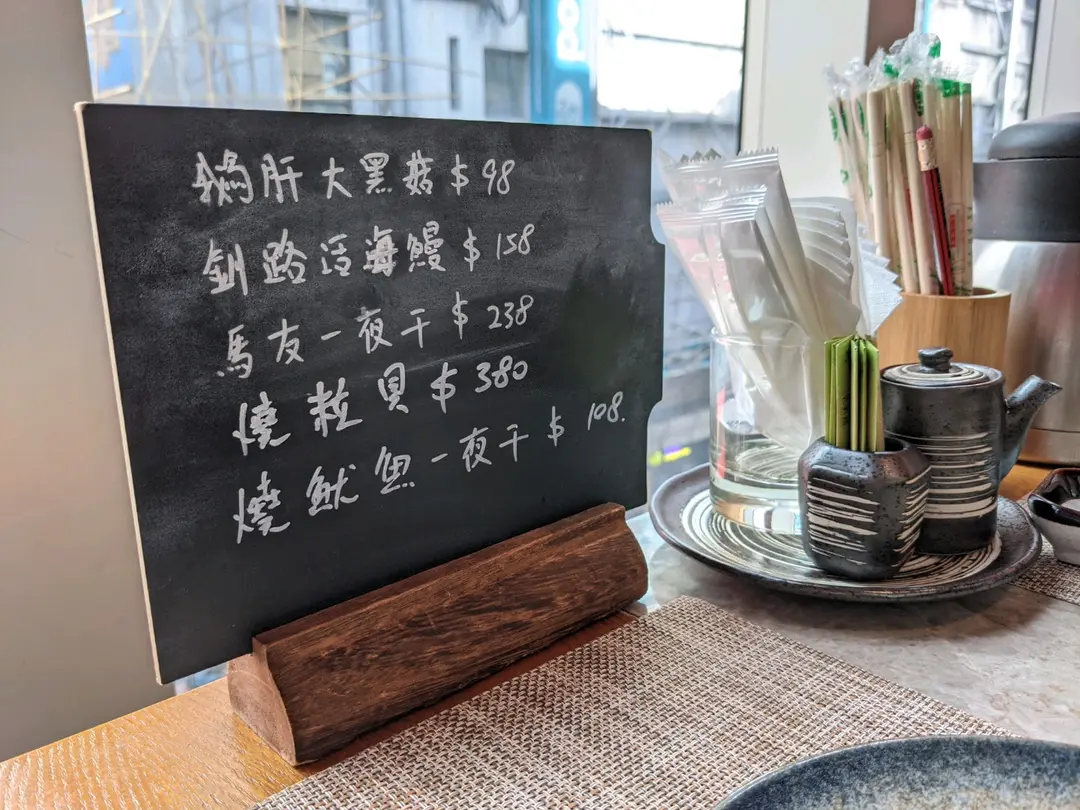 鵝肝大黑菇 $98
釧路活海鰻 $158
馬友一夜干 $238
燒粒貝 $380
燒魷魚一夜干 $108.